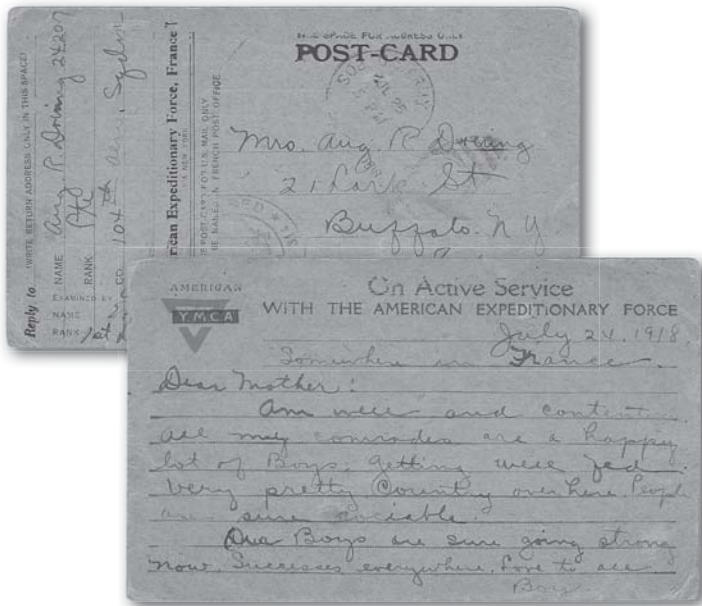 THIS SPACE FOR ADDRESS ONLY
POST-CARD
Mrs. Aug. P. Doring
21 Park St
Buffalo. N Y
(WRITE RETURN ADDRESS ONLY IN THIS SPACE)
Reply to
NAME Aug. P. Doring 24207
RANK Pte
CO. 104th Aero. Sqdn
EXAMINED BY
NAME
RANK
rican Expeditionary Force, France
VIA NEW YORK
IS POST-CARD FOR U.S. MAIL ONLY
BE MAILED IN FRENCH POST OFFICE
AMERICAN
YMCA
On Active Service
WITH THE AMERICAN EXPEDITIONARY FORCE
July 24. 1918.
Somewhere in France.
Dear Mother:
Am well and content.
all my comrades are a happy
lot of Boys. getting well fed.
Very pretty Country over here. People
are sure sociable.
Our Boys are sure going strong
now. Successes everywhere. Love to all
Boy.